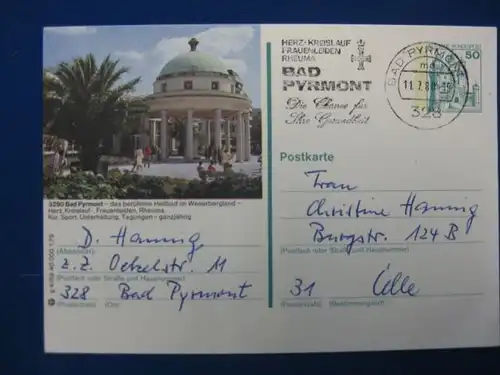 HERZ·KREISLAUF
FRAUENLEIDEN
RHEUMA
BAD
PYRMONT
Die Chance für
Ihre Gesundheit
BAD PYRMONT
11.7.80
328
50
3280 Bad Pyrmont – das berühmte Heilbad im Weserbergland –
Herz, Kreislauf, Frauenleiden, Rheuma,
Kur, Sport, Unterhaltung, Tagungen – ganzjährig
D. Hannig
(Absender)
z.Z. Oetzelstr. 11
(Postfach oder Straße und Hausnummer)
328 Bad Pyrmont
(Postleitzahl) (Ort)
Postkarte
Frau
Christine Hannig
Burgstr. 124 B
(Postfach oder Straße und Hausnummer)
31 Celle
(Postleitzahl) (Bestimmungsort)